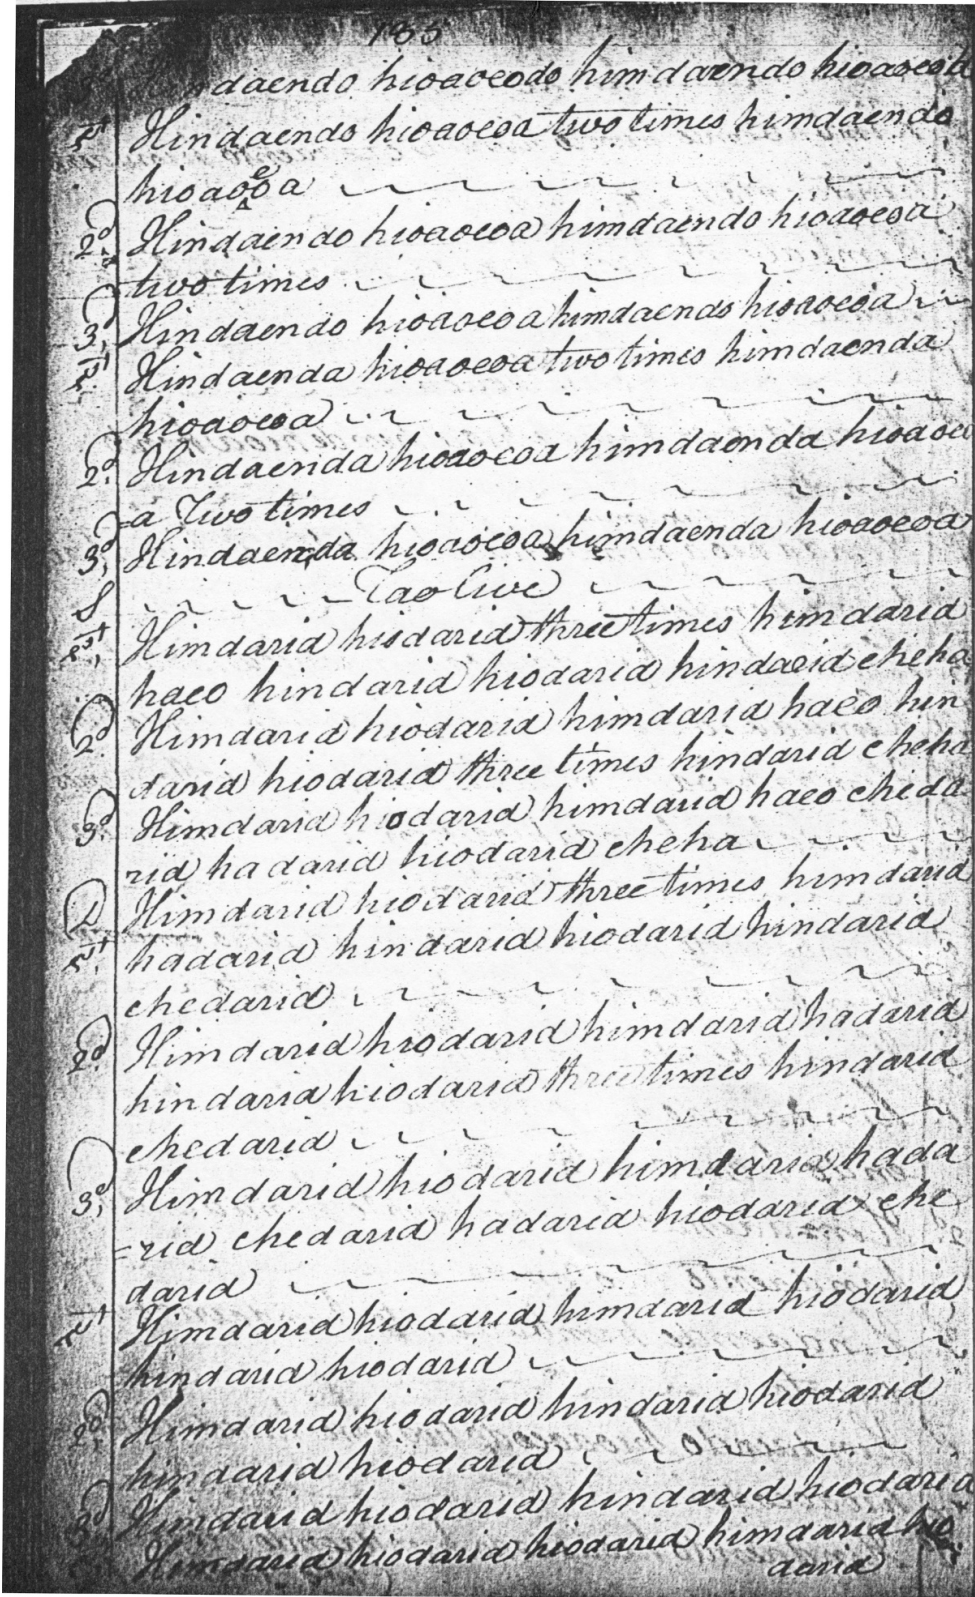 185
daendo hioaoeodo himdaendo hioaoeod
1st Hindaendo hioaoeoa two times himdaendo
hioaoeoa
2d Hindaendo hioaoeoa himdaendo hioaoeoa
two times
3d Hindaendo hioaoeoa himdaendo hioaoeoa
1st Hindaenda hioaoeoa two times himdaenda
hioaoeoa
2d Hindaenda hioaoeoa himdaenda hioaoeo
=a Two times
3d Hindaenda hioaoeoa himdaenda hioaoeoa
S Tao live
1st Himdarid hiodarid three times himdarid
haeo hindarid hiodarid hindarid cheha
2d Himdarid hiodarid himdarid haeo hin
darid hiodarid three times hindarid cheha
3d Himdarid hiodarid himdarid haeo cheda
rid hadarid hiodarid cheha
D Himdarid hiodarid three times himdarid
1st hadarid hindarid hiodarid hindarid
chedarid
2d Himdarid hiodarid himdarid hadarid
hindarid hiodarid three times hindarid
chedarid
3d Himdarid hiodarid himdarid hada
=rid chedarid hadarid hiodarid che
darid
1st Himdarid hiodarid himdarid hiodarid
hindarid hiodarid
2d Himdarid hiodarid hindarid hiodarid
hindarid hiodarid
3d Himdarid hiodarid hindarid hiodarid
Himdarid hiodarid hiodarid himdarid hio
darid